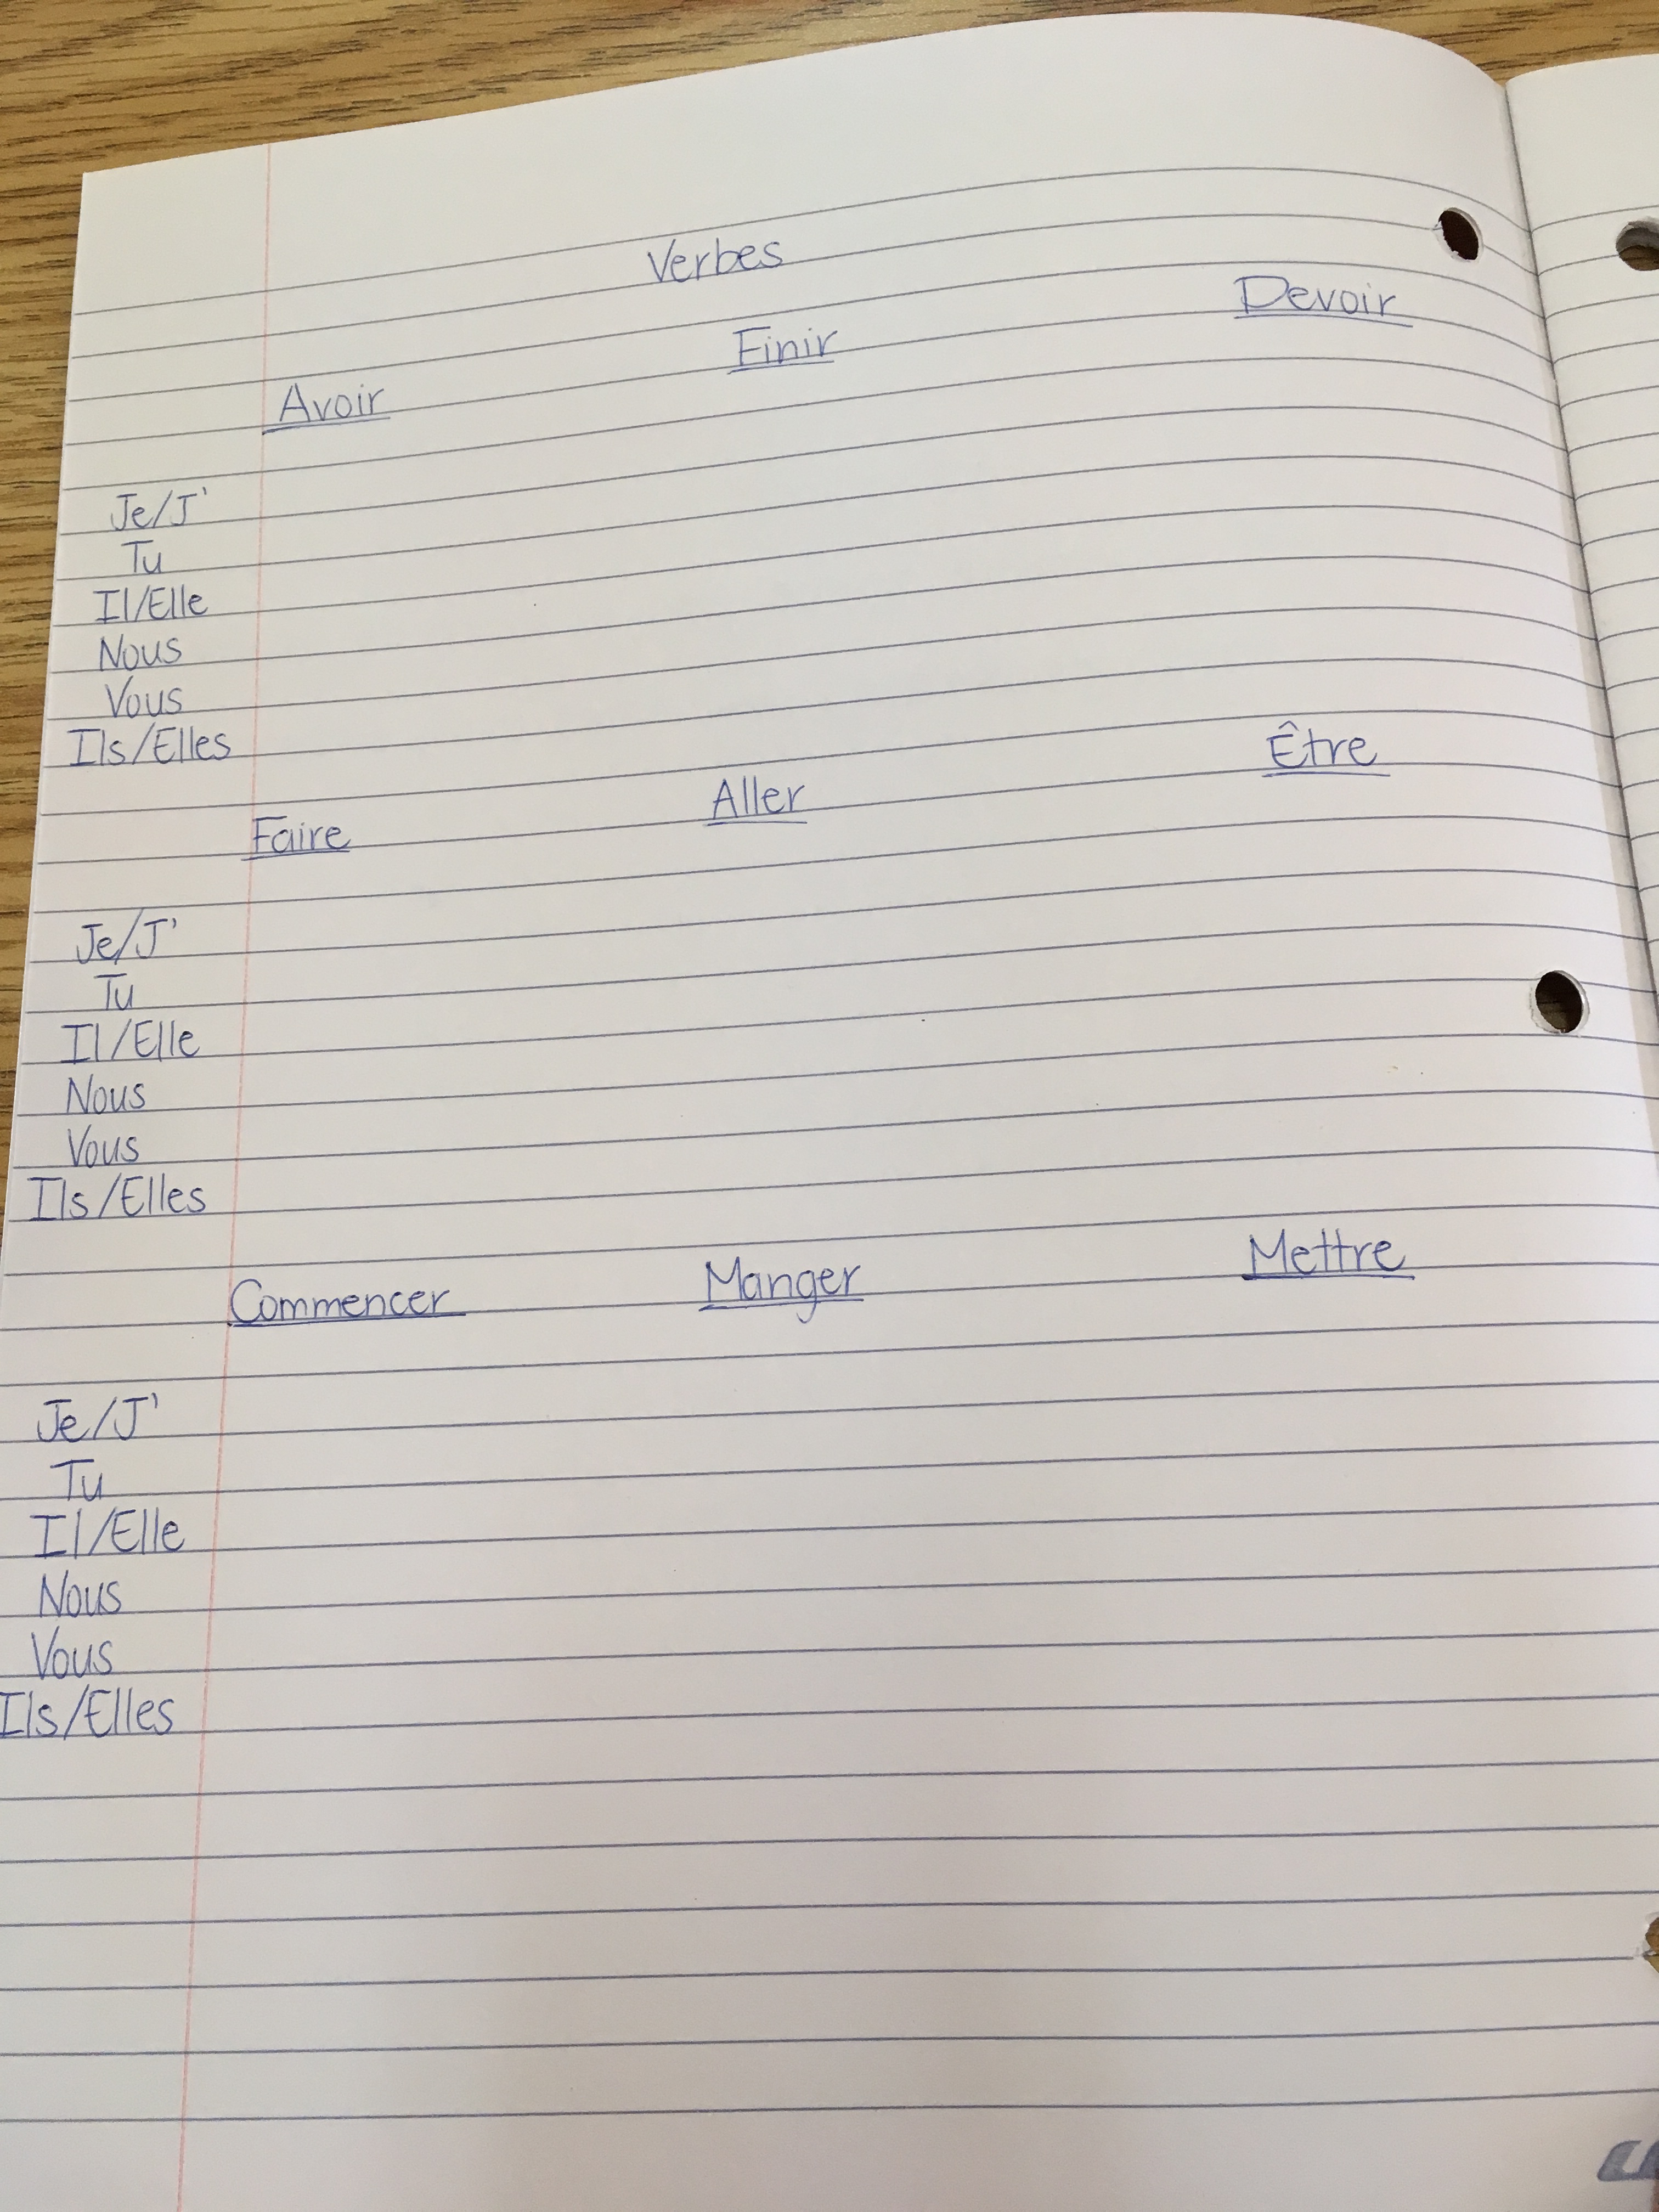 Verbes
Avoir Finir Devoir
Je/J'
Tu
Il/Elle
Nous
Vous
Ils/Elles
Faire Aller Être
Je/J'
Tu
Il/Elle
Nous
Vous
Ils/Elles
Commencer Manger Mettre
Je/J'
Tu
Il/Elle
Nous
Vous
Ils/Elles